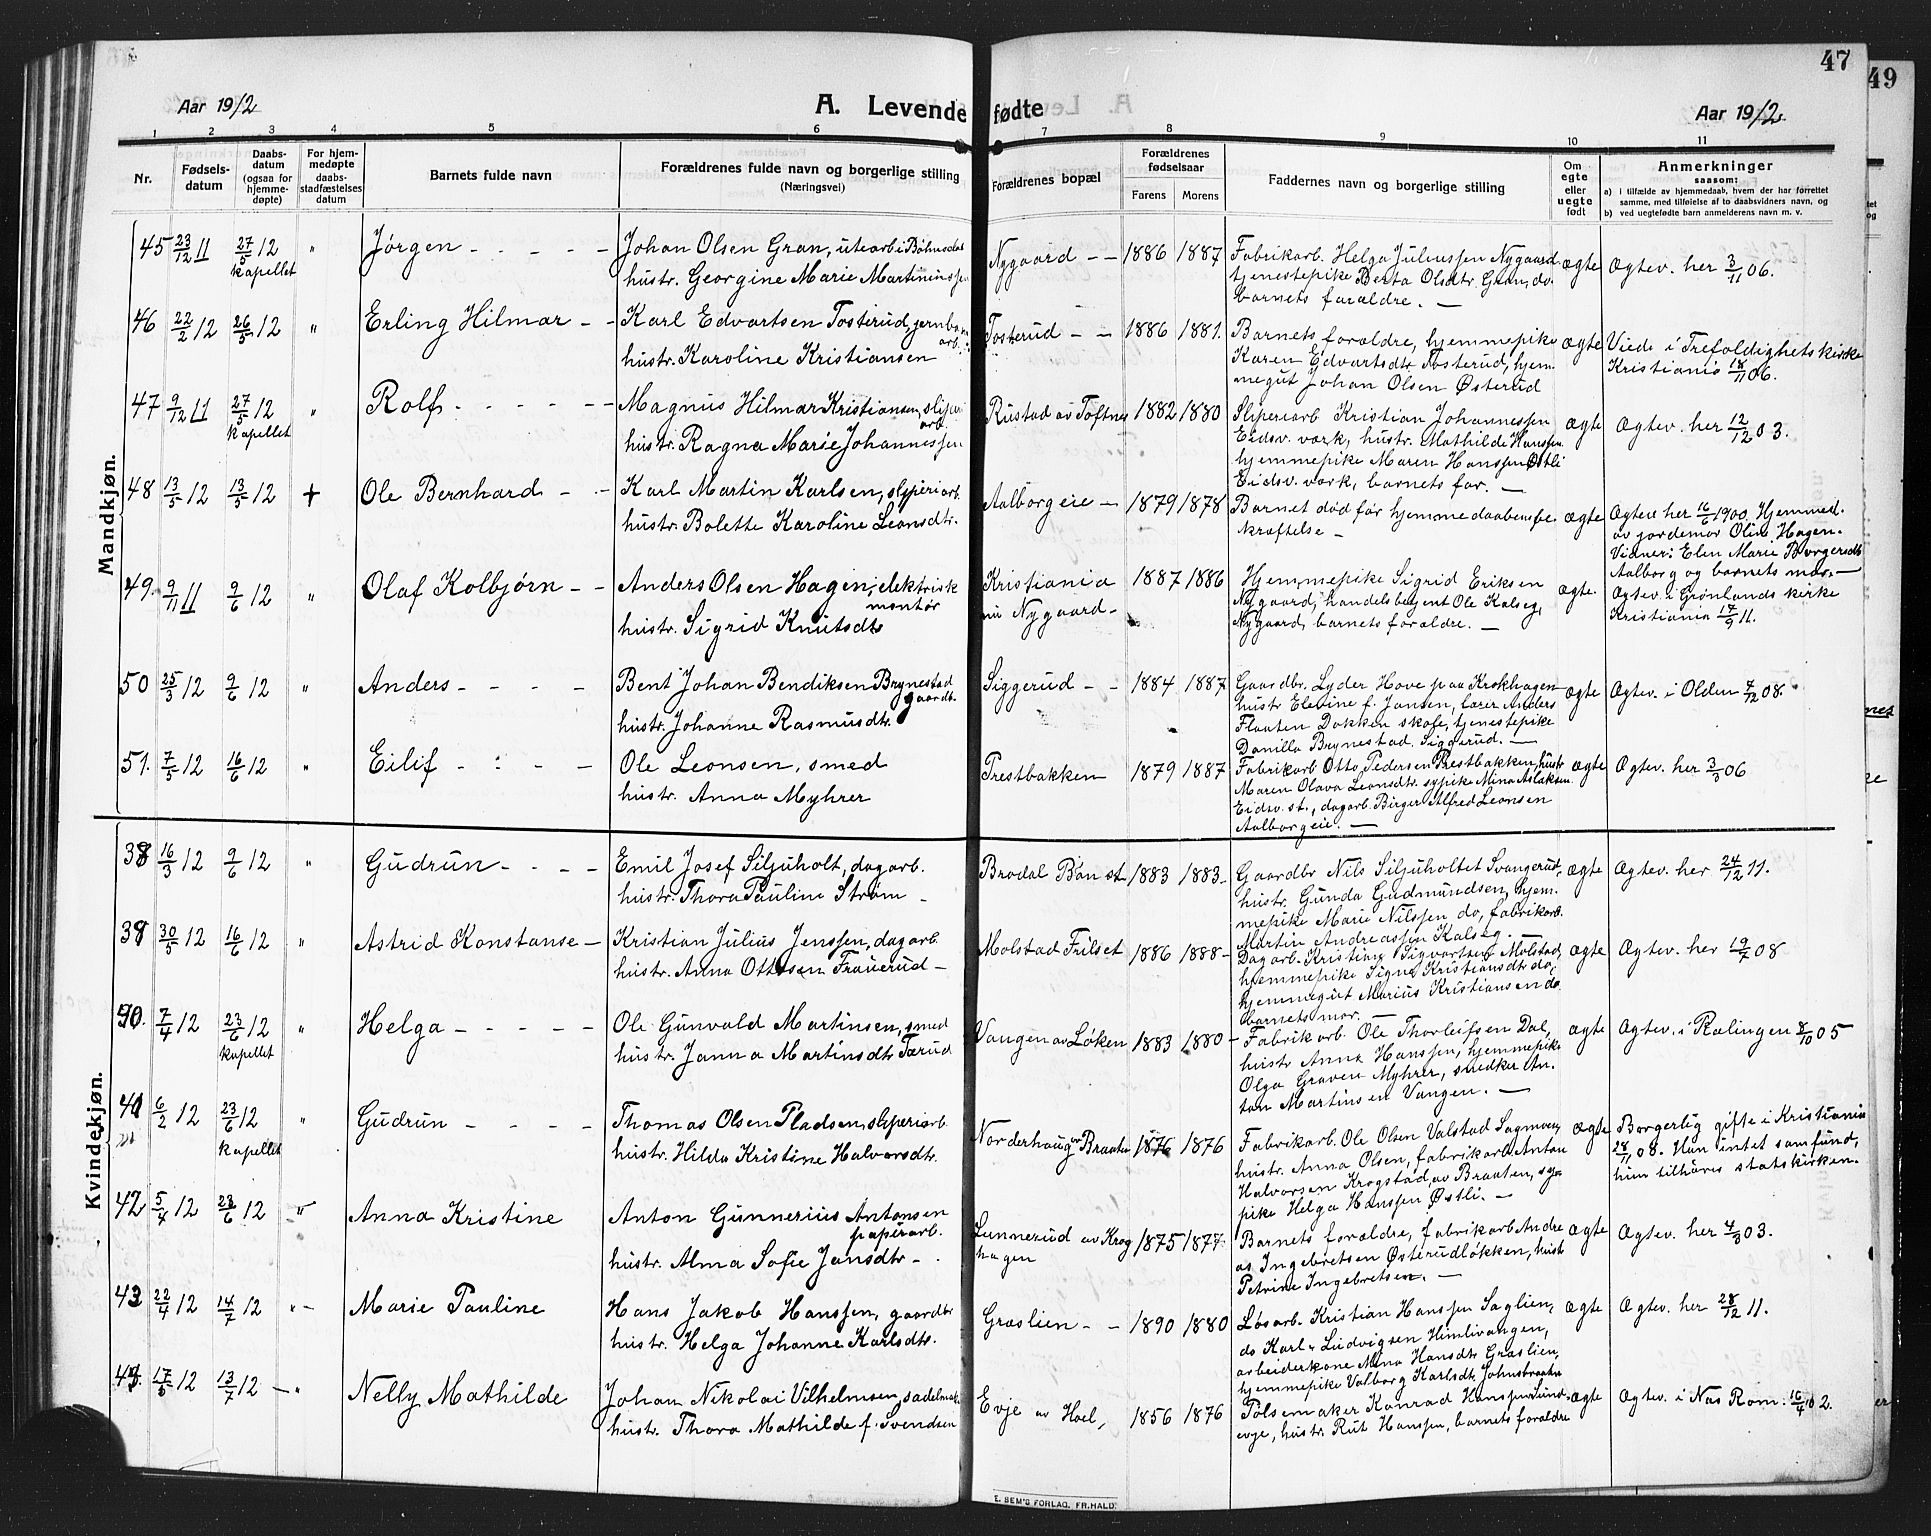 47
49
Aar 1912
A. Levende fødte
Aar 1912.
1 2 3 4 5 6 7 8 9 10 11
Nr.
Fødsels-
datum
Daabs-
datum
(ogsaa for
hjemme-
døpte)
For hjem-
medøpte
daabs-
stadfæstelses
datum
Barnets fulde navn
Forældrenes fulde navn og borgerlige stilling
(Næringsvei)
Forældrenes bopæl
Forældrenes
fødselsaar
Farens Morens
Faddernes navn og borgerlige stilling
Om
egte
eller
uegte
født
Anmerkninger
saasom:
a) i tilfælde av hjemmedaab, hvem der har forrettet
samme, med tilføielse af to daabsvidners navn, og
b) ved uegtefødte barn anmelderens navn m. v.
Mandkjøn.
45 23/12 11 27/5 12 " Jørgen - - - - Johan Olsen Gran, utearb i Bøhnsdal Nygaard - - 1886 1887 Fabrikarb. Helga Juliussen Nygaard ægte Ægtev. her 3/11 06.
kapellet hustr. Georgine Marie Martiniussen tjenestepike Berta Olsdtr. Gran, do.
barnets forældre. -
46 22/2 12 26/5 12 " Erling Hilmar - - Karl Edvartsen Tosterud, jernbane Tosterud - - 1886 1881. Barnets forældre, hjemmepike ægte Viede i Trefoldighetskirke
arb.
hustr. Karoline Kristiansen Karen Edvartsdtr Tosterud, hjem- Kristiania 18/11 06.
megut Johan Olsen Østerud
47 9/12 11 27/5 12 " Rolf - - - - - Magnus Hilmar Kristiansen, sliperi Rustad av Toftnes 1882 1880 Sliperiarb Kristian Johannessen ægte Ægtev. her 12/12 03.
kapellet arb.
hustr. Ragna Marie Johannessen Eidsv. værk, hustr. Mathilde Hanssen
hjemmepike Maren Hanssen Østli
Eidsv. værk, barnets far. -
48 13/5 12 13/5 12 + Ole Bernhard - - Karl Martin Karlsen, sliperiarb. Aalborgeie - 1879 1878 Barnet død før hjemmedaabens be- ægte Ægtev. her 16/6 1900. Hjemmed.
hustr. Bolette Karoline Leonsdtr. kræftelse - av jordemor Oline Hagen.
Vidner: Elen Marie Borgersdtr
Aalborg og barnets mor. -
49. 9/11 11 9/6 12 " Olaf Kolbjørn - - Anders Olsen Hagen, elektrisk Kristiania 1887 1886 Hjemmepike Sigrid Eriksen ægte. Ægtev. i Grønlands kirke
montør nu Nygaard - Nygaard, handelsbetjent Ole Kalseg, Kristiania 17/9 11.
hustr. Sigrid Knutsdtr Nygaard, barnets forældre. -
50 25/3 12 9/6 12 " Anders - - - - Bent Johan Bendiksen Brynestad Siggerud - - 1884 1887 Gaardbr. Lyder Hove paa Krokhagen ægte Ægtev. i Olden 7/12 08.
gaardbr.
hustr. Johanne Rasmusdtr. hustr Elevine f. Jansen, lærer Anders
Flaaten Dokken skole, tjenestepike
Danilla Brynestad Siggerud. -
51. 7/5 12 16/6 12 " Eilif - - - Ole Leonsen, smed Prestbakken 1879 1887 Fabrikarb Otto Pedersen Prestbakken, hustr ægte Ægtev. her 3/3 06
hustr. Anna Myhrer Maren Olava Leonsdtr. sypike Mina Aslaksen
Eidsv. st., dagarb. Birger Alfred Leonsen
Aalborgeie. -
Kvindekjøn.
38 16/3 12 9/6 12 " Gudrun - - - - Emil Josef Siljuholt, dagarb. Brodal Bøn st. 1883 1883. Gaardbr Nils Siljuholtet Svangerud, ægte Ægtev. her 24/12 11.
hustr. Thora Pauline Strøm - hustr. Gunda Gudmundsen, hjem-
mepike Marie Nilssen do, fabrikarb.
Martin Andreassen Kalseg. -
39 30/5 12 16/6 12 " Astrid Konstanse - Kristian Julius Jenssen, dagarb. Molstad Frilset 1886 1888 - Dagarb. Kristian Sigvartsen Molstad, ægte Ægtev. her 19/7 08
hustr. Anna Ottesen Frauerud - hjemmepike Signe Kristiansdtr do,
hjemmegut Marius Kristiansen do.
barnets mor. -
40. 7/4 12 23/6 12 " Helga - - - - - Ole Gunvald Martinsen, smed Vangen av Løken 1883 1880 - Fabrikarb. Ole Thorleifsen Dal, ægte Ægtev. i Rælingen 8/10 05
kapellet hustr. Janna Martinsdtr Tærud hustr Anna Hanssen, hjemmepike
Olga Graven Myhrer, snedker An-
ton Martinsen Vangen. -
41 6/2 12 23/6 12 " Gudrun - - - - Thomas Olsen Pladsen, sliperiarb. Norderhaug av Braaten 1876 1876 Fabrikarb. Ole Olsen Valstad Sagmoen, ægte Borgerlig gifte i Kristiania
kapellet hustr. Hilda Kristine Halvorsdtr. hustr. Anna Olsen, fabrikarb Anton 28/11 08. Han intet samfund,
Halvorsen Krogstad av Braaten, sy- hun tilhører statskirken.
pike Helga Hanssen Østli. -
42 5/4 12 23/6 12 " Anna Kristine Anton Gunnerius Antonsen Lunnerud av Krog 1875 1877. Barnets forældre, fabrikarb Andre ægte Ægtev. her 4/3 03.
papirarb. hagen
hustr. Alma Sofie Jansdtr - as Ingebretsen Østerudløkken, hustr
Petrine Ingebretsen. -
43 22/4 12 14/7 12 " - Marie Pauline Hans Jakob Hanssen, gaardbr Græslien - - 1890 1880 Løsarb. Kristian Hanssen Saglien, ægte Ægtev. her 28/12 11.
hustr. Helga Johanne Karlsdtr. do Karl Ludvigsen Himlivangen,
arbeiderkone Mina Hansdtr Græslien,
hjemmepike Valborg Karlsdtr Johnsbraaten
44. 17/5 12 13/7 12 - " Nelly Mathilde Johan Nikolai Vilhelmsen, sadelmaker Evje av Hoel, 1856 1876 Pølsemaker Konrad Hanssen Sund- ægte Ægtev. i Næs Rom. 16/4 02.
hustr. Thora Mathilde f. Svendsen evje, hustr. Rut Hanssen, barnets forældre
E. SEM'S FORLAG, FR.HALD.